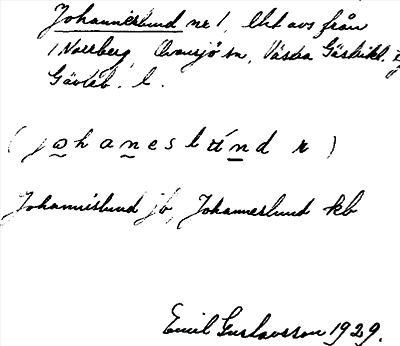 Johanneslund nr 1, lht avs från
1 Norrberg Ovansjö sn, Västra Gästrikl.
Gävleb. l.
(johaneslund r)
Johannislund jb, Johanneslund kb
Emil Gustavsson 1929.